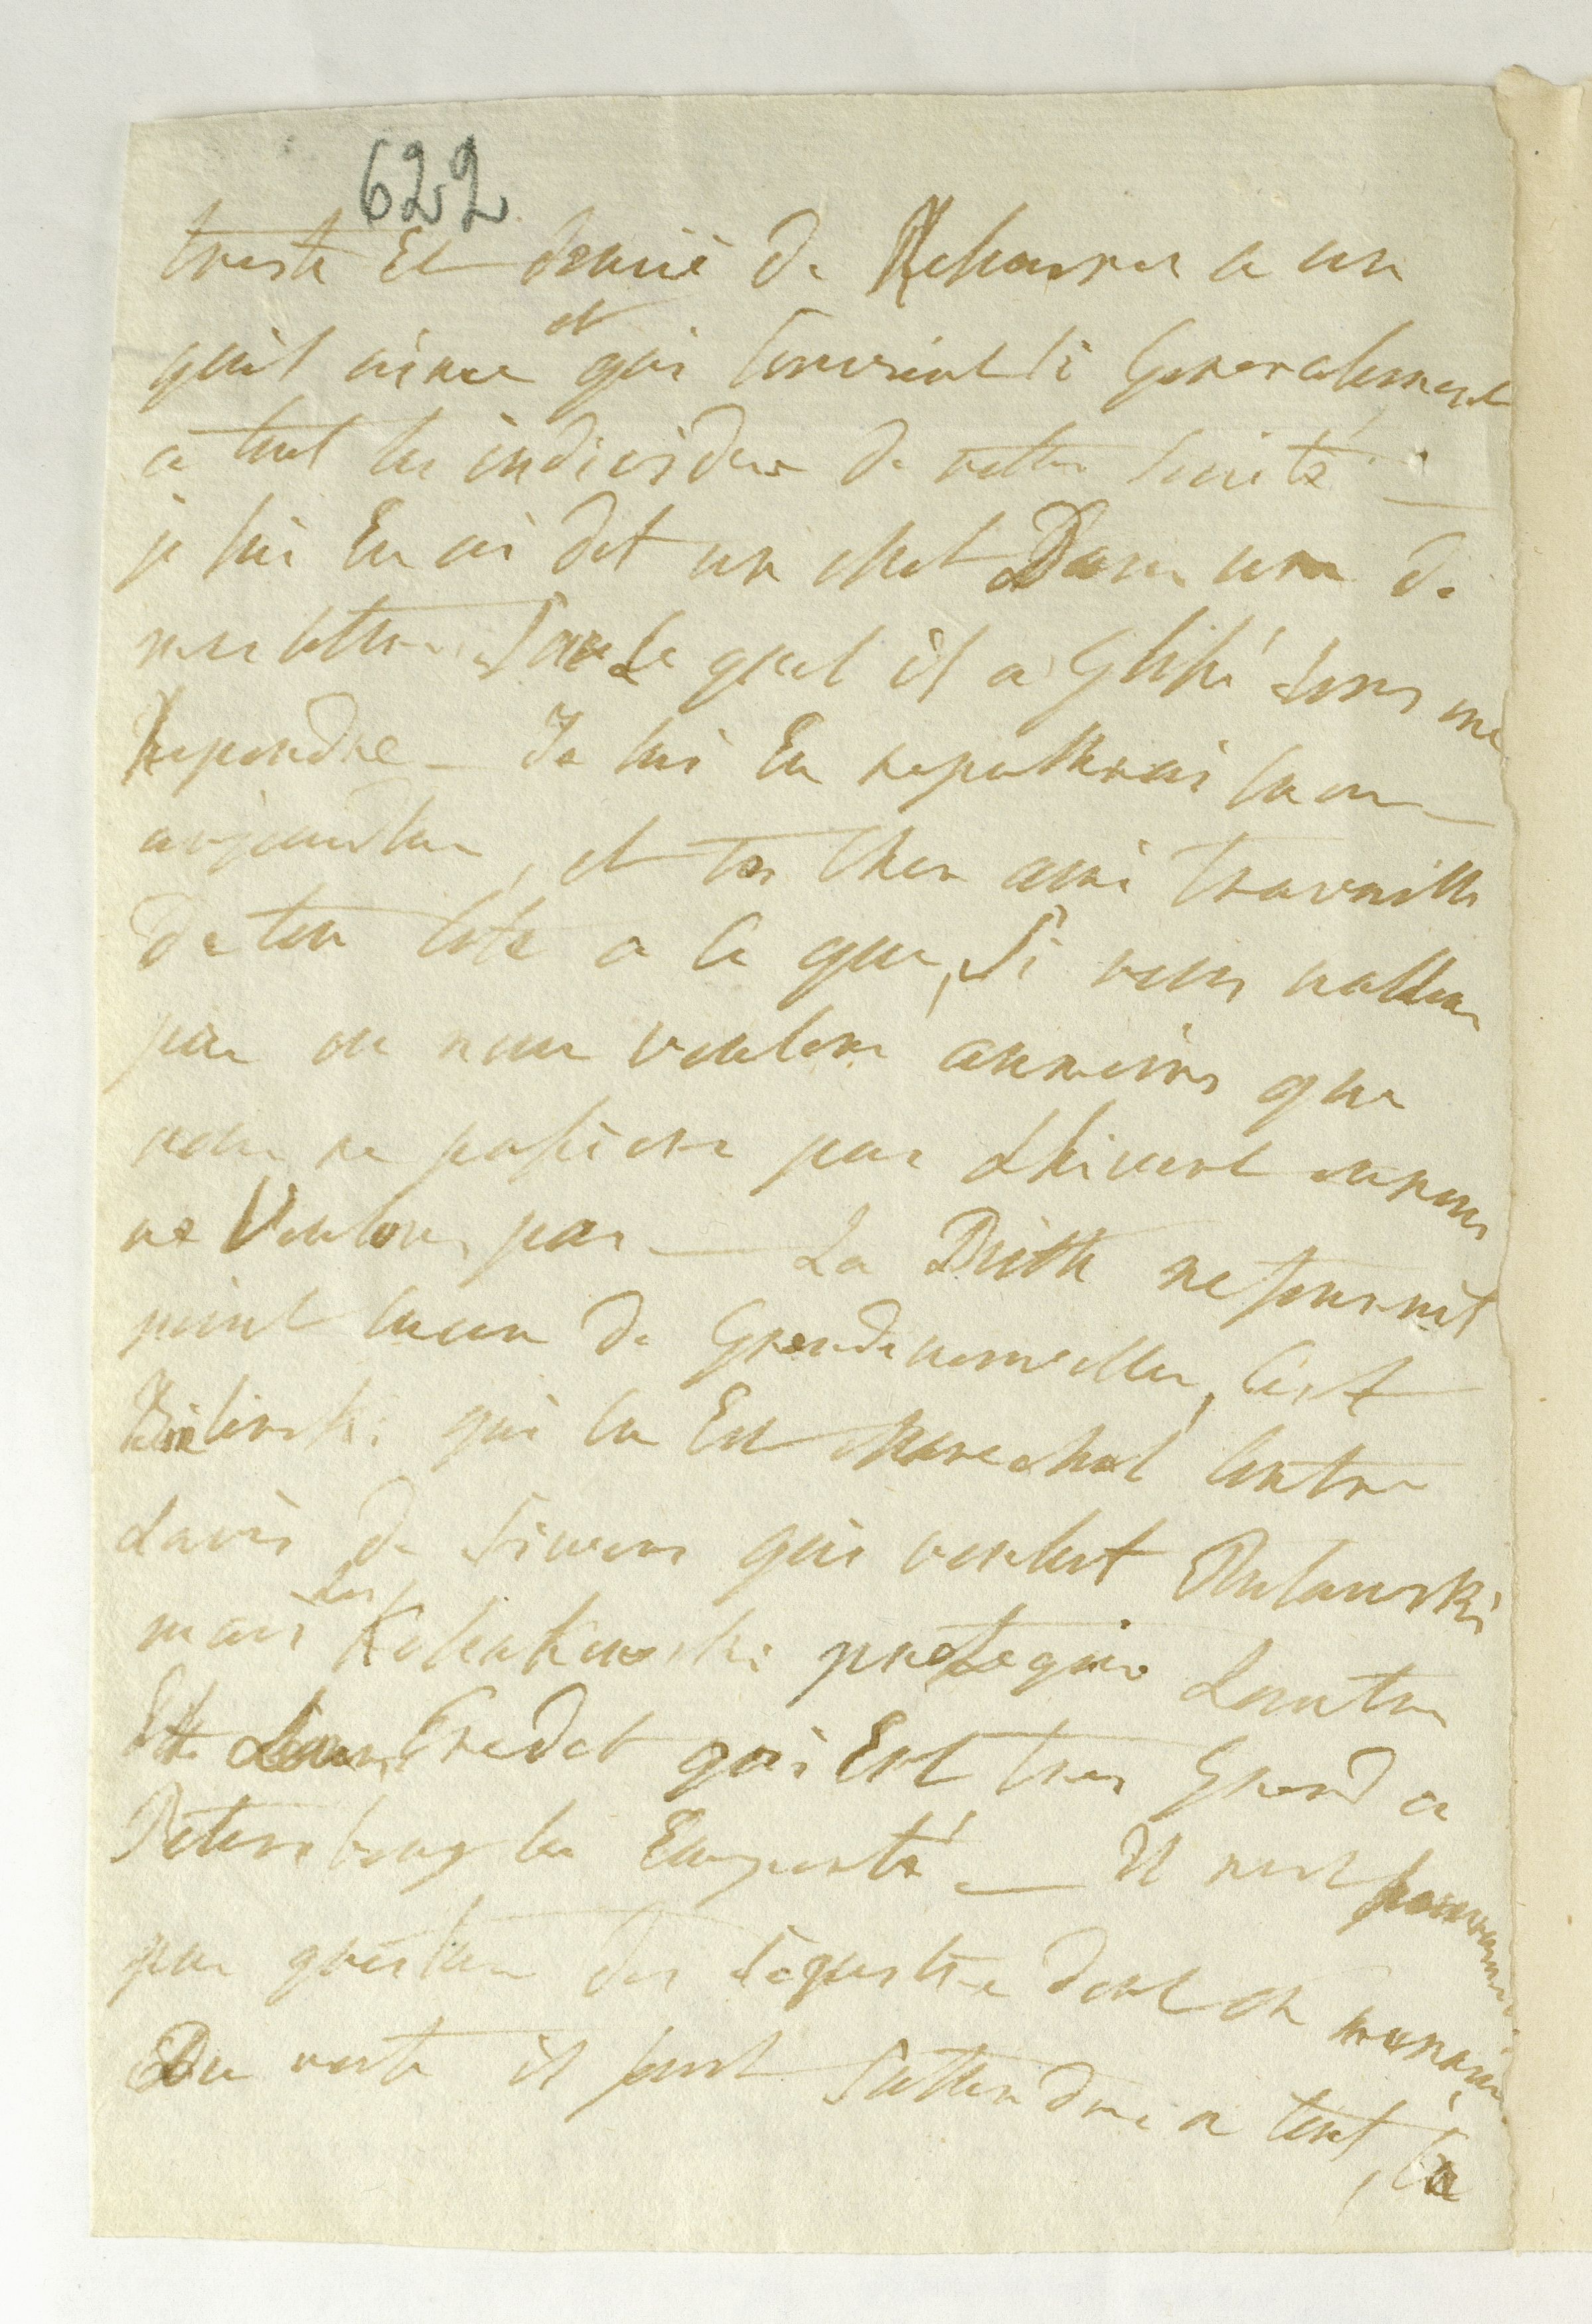 622
triste et denuié de Ressources a un
quil aime et qui convient si Generalement
a tout les individus de cette societé —
je lui En ai dit un mot Dans une de
mes lettres sur Le quel il a Glissé sans me
Repondre — Je lui En reparlerai Encore
aujourdhui, et toi cher ami travaille
de ton coté a ce que, si vous nallez
pas ou nous voulons aumoins que
vous ne passiez pas Lhivert ou nous
ne Voulons pas — La Diette ne fournit
point Encore de Grande nouvelles, C'est
Bilinski qui En Est Marechal contre
Lavis de Sivers qui vouloit Pulawski
mais les Kossakowski protegoie Lautre
Et Leur Credit qui Est tres Grand a
Petersbourg la Emporté — Il nest
pas question des sequestre dont on
Du reste il faut sattendre a tout, En